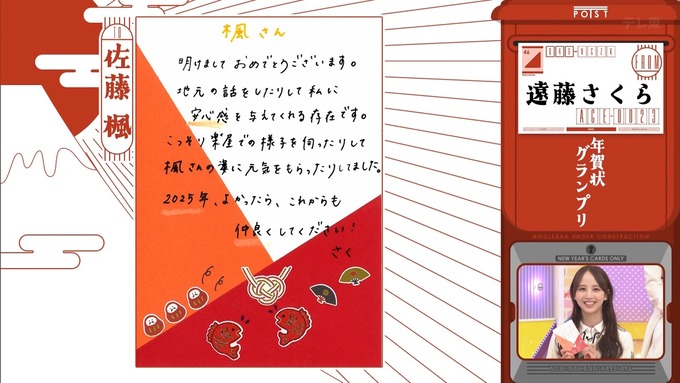 TO
佐藤 楓
楓さん
明けましておめでとうございます。
地元の話をしたりして私に
安心感を与えてくれる存在です。
こっそり楽屋での様子を伺ったりして
楓さんの姿に元気をもらったりしてました。
2025年、よかったら、これからも
仲良くしてください!
さく
POIST
テレ東
46
FROM
遠藤さくら
AGE-0023
年賀状
グランプリ
NOGIZAKA UNDER CONSTRUCTION
NEW YEAR'S CARDS ONLY